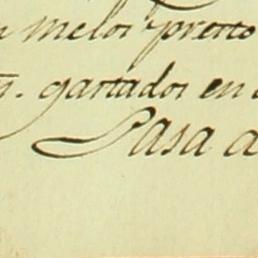 melos presto
gastados en
Pasa a